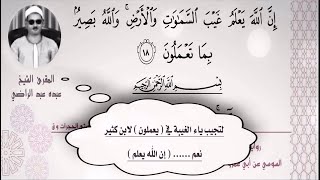 إِنَّ ٱللَّهَ يَعْلَمُ غَيْبَ ٱلسَّمَٰوَٰتِ وَٱلْأَرْضِ ۚ وَٱللَّهُ بَصِيرٌۢ
بِمَا تَعْمَلُونَ ١٨
المقرئ الشيخ
عبده عبد الراضي
بِسْمِ ٱللَّهِ ٱلرَّحْمَٰنِ ٱلرَّحِيمِ
لتجيب ياء الغيبة في ( يعملون ) لابن كثير
نعم ...... ( إن الله يعلم )
السوسي عن أبي